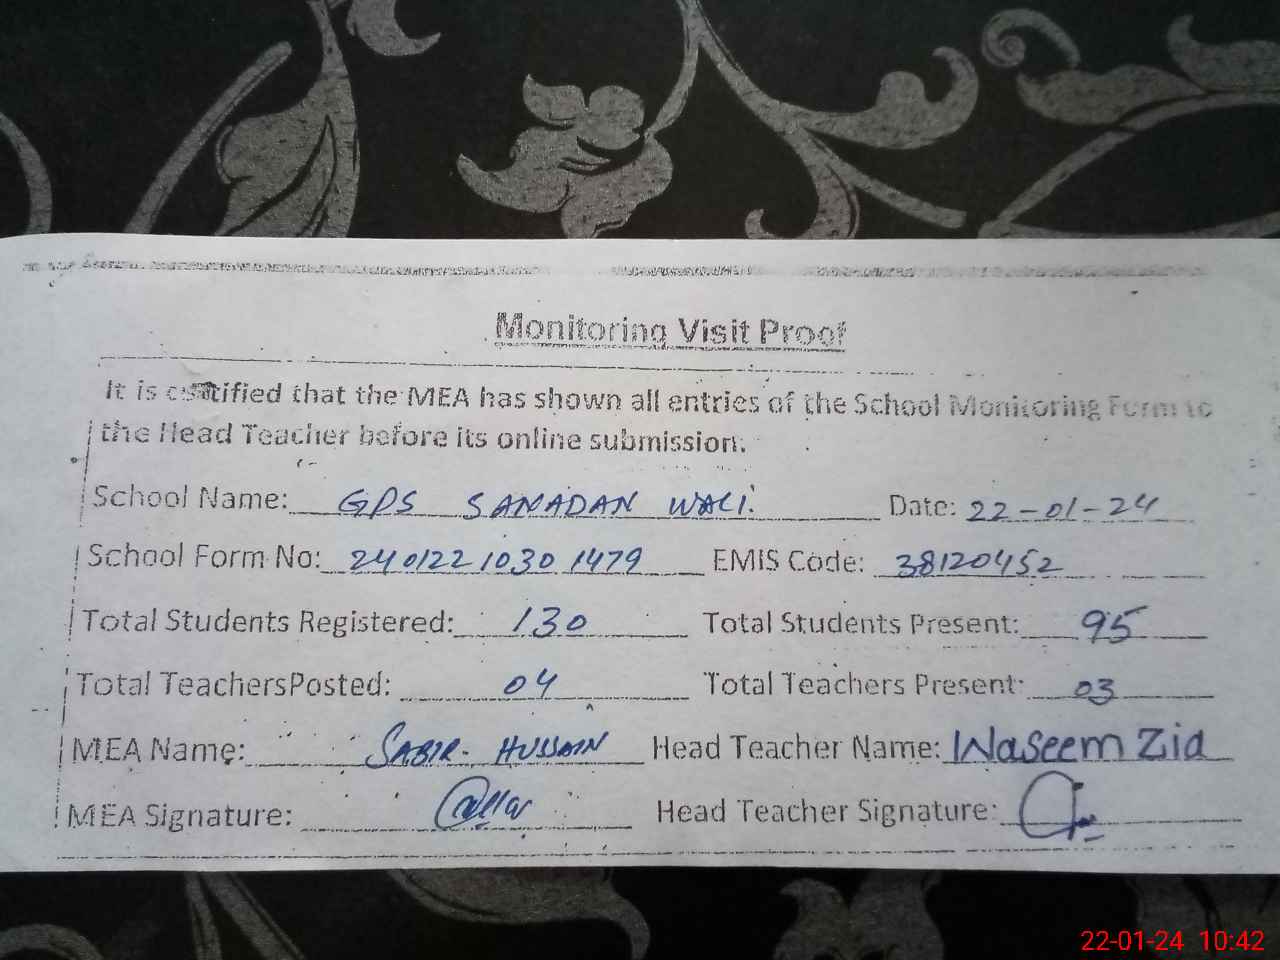 Monitoring Visit Proof
It is certified that the MEA has shown all entries of the School Monitoring Form to
the Head Teacher before its online submission.
School Name: GPS SANADAN WALI. Date: 22-01-24
School Form No: 240122 1030 1479 EMIS Code: 38120452
Total Students Registered: 130 Total Students Present: 95
Total TeachersPosted: 04 Total Teachers Present: 03
MEA Name: SABIR- HUSSAIN Head Teacher Name: Waseem Zia
MEA Signature: Head Teacher Signature:
22-01-24 10:42